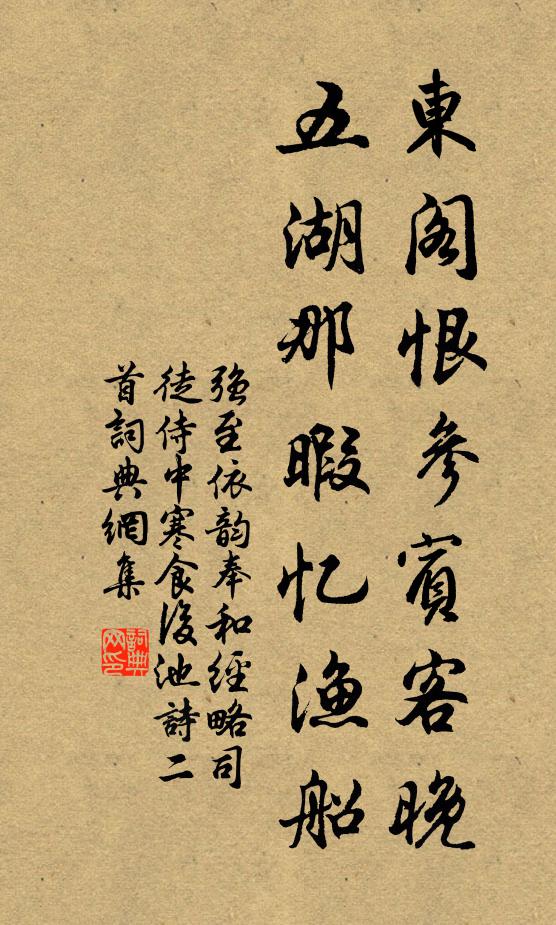 東閣恨參賓客晚
五湖那暇忆漁船
强至依韵奉和經略司
徒侍中寒食後池詩二
首詞典網集
詞典
网印